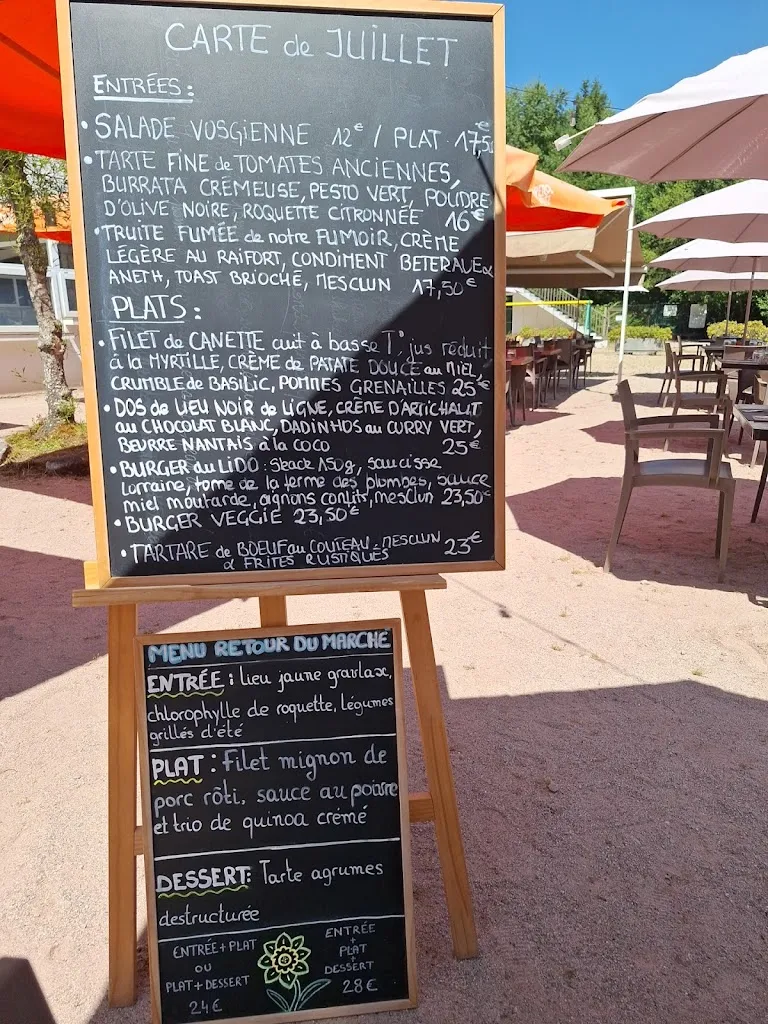 CARTE de JUILLET
ENTRÉES :
• SALADE VOSGIENNE 12€ / PLAT 17,5€
• TARTE FINE de TOMATES ANCIENNES,
BURRATA CRÉMEUSE, PESTO VERT, POUDRE
D'OLIVE NOIRE, ROQUETTE CITRONNÉE 16€
• TRUITE FUMÉE de notre FUMOIR, CRÈME
LÉGÈRE AU RAIFORT, CONDIMENT BETERAVE &
ANETH, TOAST BRIOCHÉ, MESCLUN 17,50€
PLATS :
• FILET de CANETTE cuit à basse T°, jus réduit
à la MYRTILLE, CRÈME de PATATE DOUCE au MIEL,
CRUMBLE de BASILIC, POMMES GRENAILLES 25€
• DOS de LIEU NOIR de LIGNE, CRÈME D'ARTICHAUT
au CHOCOLAT BLANC, DADINHOS au CURRY VERT,
BEURRE NANTAIS à la COCO 25€
• BURGER du LIDO : Steack 150g, saucisse
lorraine, tome de la ferme des plombes, sauce
miel moutarde, oignons confits, mesclun 23,50€
• BURGER VEGGIE 23,50€
• TARTARE de BOEUF au COUTEAU, MESCLUN
& FRITES RUSTIQUES 23€
MENU RETOUR DU MARCHÉ
ENTRÉE : lieu jaune gravlax,
chlorophylle de roquette, légumes
grillés d'été
PLAT : Filet mignon de
porc rôti, sauce au poivre
et trio de quinoa crémé
DESSERT : Tarte agrumes
destructurée
ENTRÉE + PLAT
OU
PLAT + DESSERT
24€
ENTRÉE
+
PLAT
+
DESSERT
28€